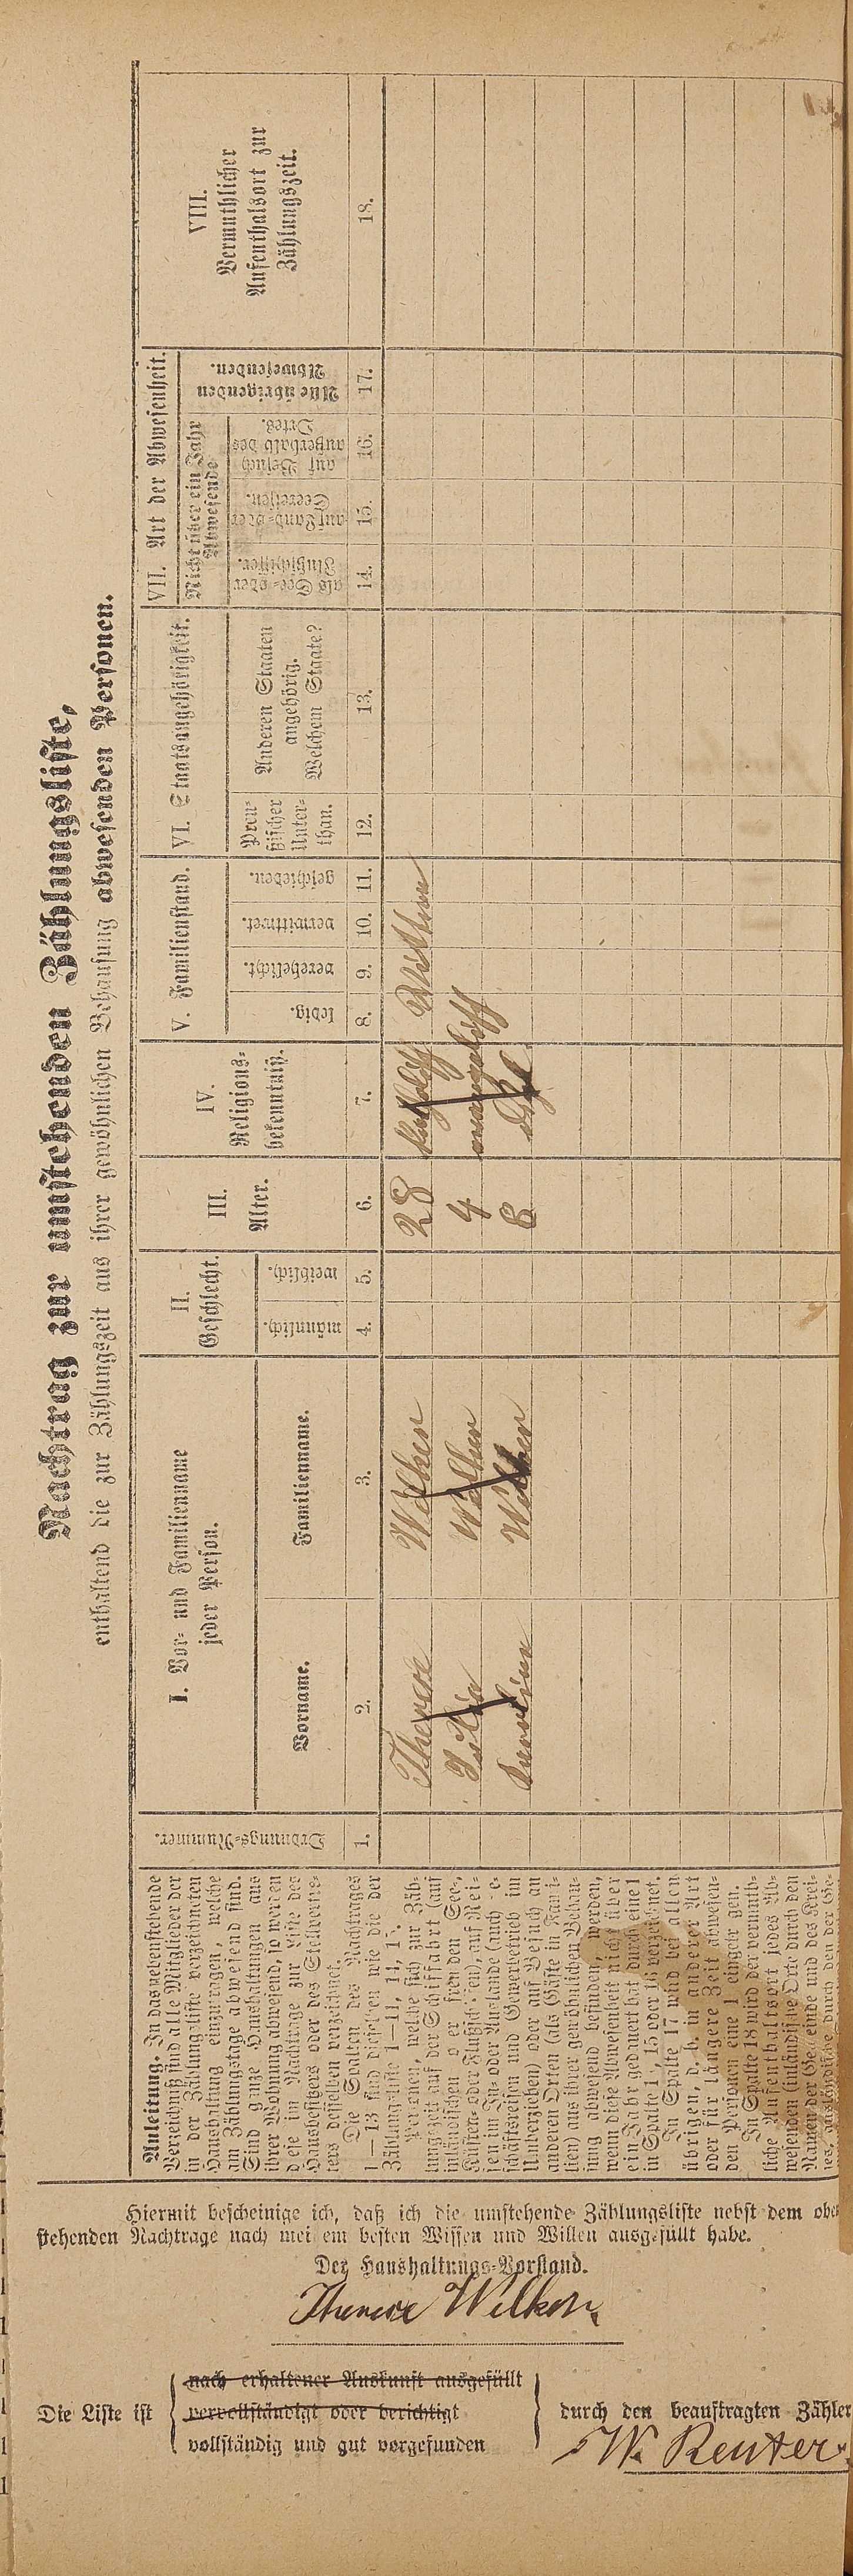 Nachtrag zur umstehenden Zählungsliste,
enthaltend die zur Zählungszeit aus ihrer gewöhnlichen Behausung abwesenden Personen.
Anleitung. In das nebenstehende
Verzeichniß sind alle Mitglieder der
in der Zählungsliste verzeichneten
Haushaltung einzutragen, welche
am Zählungstage abwesend sind.
Sind ganze Haushaltungen aus
ihrer Wohnung abwesend, so werden
diese im Nachtrage zur Liste des
Hausbesitzers oder des Stellvertre-
ters desselben verzeichnet.
Die Spalten des Nachtrages
1—13 sind dieselben wie die der
Zählungsliste 1—11,
Personen, welche sich zur Zäh-
lungszeit auf der Schiffahrt (auf
inländischen oder fremden See-,
Küsten- oder Flußschiffen), auf Rei-
sen im In- oder Auslande (auch Ge-
schäftsreisen und Gewerbebetrieb im
Umherziehen) oder auf Besuch an
anderen Orten (als Gäste in Fami-
lien) aus ihrer gewöhnlichen Behau-
sung abwesend befinden, werden,
wenn diese Abwesenheit nicht über
ein Jahr gedauert hat durch eine 1
in Spalte 14, 15 oder 16 verzeichnet.
In Spalte 17 wird bei allen
übrigen, d. h. in anderer Art
oder für längere Zeit abwesen-
den Personen eine 1 eingetragen.
In Spalte 18 wird der vermuth-
liche Aufenthaltsort jedes Ab-
wesenden (inländische Orte durch den
Namen der Gemeinde und des Krei-
ses, ausländische durch den der Ge-
Ordnungs-Nummer.
I. Vor- und Familienname
jeder Person.
Vorname.
Familienname.
II.
Geschlecht.
männlich.
weiblich.
III.
Alter.
IV.
Religions-
bekenntniß.
V. Familienstand.
ledig.
verehelicht.
verwittwet.
geschieden.
VI. Staatsangehörigkeit.
Preu-
ßischer
Unter-
than.
Anderen Staaten
angehörig.
Welchem Staate?
VII. Art der Abwesenheit.
Nicht über ein Jahr
Abwesende
als See- oder
Flußschiffer.
auf Land- oder
Seereisen.
auf Besuch
außerhalb des
Ortes.
Alle übrigenden
Abwesenden.
VIII.
Vermuthlicher
Aufenthalsort zur
Zählungszeit.
1. 2. 3. 4. 5. 6. 7. 8. 9. 10. 11. 12. 13. 14. 15. 16. 17. 18.
Therese Welken 28 Katholisch Wittwe
Welken 4 evangelisch
Welken 6
Hiermit bescheinige ich, daß ich die umstehende Zählungsliste nebst dem oben
stehenden Nachtrage nach meinem besten Wissen und Willen ausgefüllt habe.
Der Haushaltungs-Vorstand.
Therese Welken
Die Liste ist
nach erhaltener Auskunft ausgefüllt
vervollständigt oder berichtigt
vollständig und gut vorgefunden
durch den beauftragten Zähler
W. Reuter